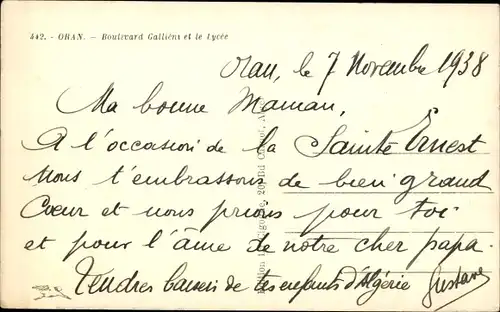 442. - ORAN. - Boulevard Galliéni et le Lycée
Oran, le 7 Novembre 1938
Ma bonne Maman,
A l'occasion de la Sainte Ernest
Nous t'embrassons de bien grand
Cœur et nous prions pour toi
et pour l'âme de notre cher papa.
Tendres baisers de tes enfants d'Algérie Gustave